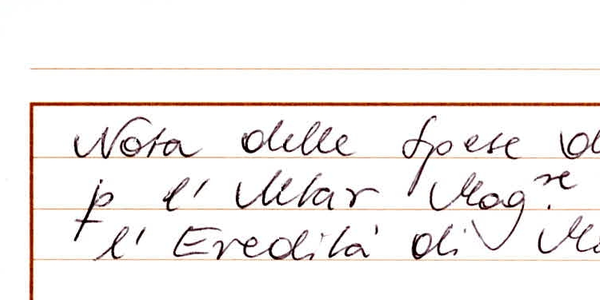 Nota delle Spese d
p l' Altar Mag.re
l' Eredità di M